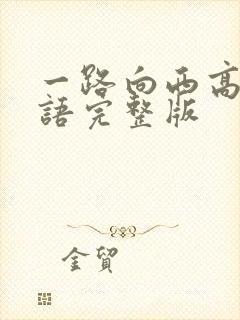 一路向西高
語完整版
金貿